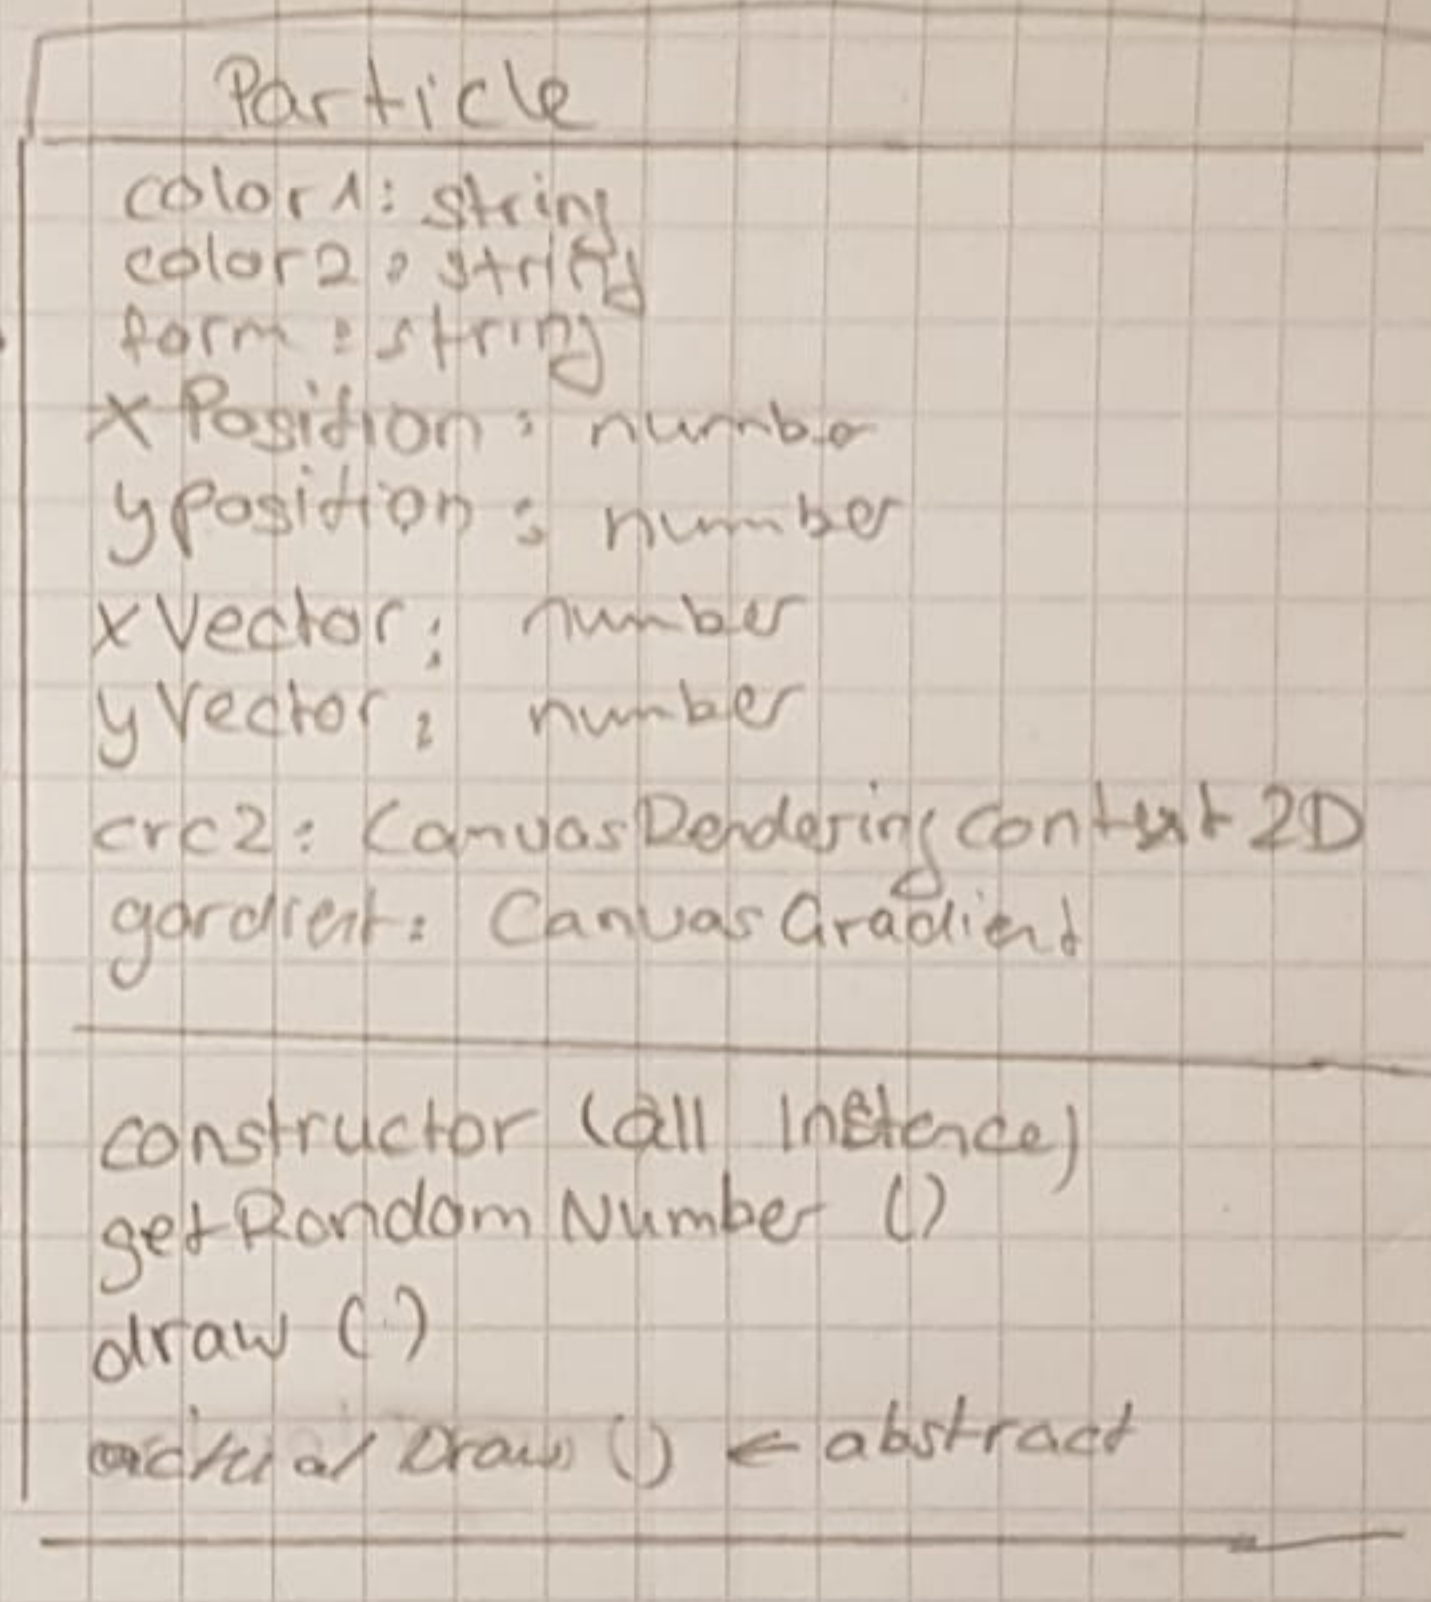 Particle
color1: string
color2: string
form: string
xPosition: number
yPosition: number
xVector: number
yVector: number
crc2: CanvasRenderingContext2D
gardient: CanvasGradient
constructor (all Instence)
getRandomNumber ()
draw ()
actual Draw () ← abstract